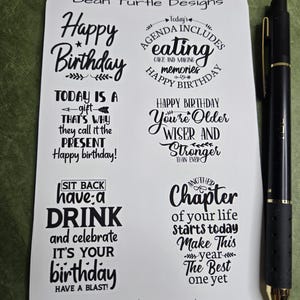 Dean Turtle Designs
Happy
Birthday
Today's
AGENDA INCLUDES
eating
CAKE AND MAKING
memories
HAPPY BIRTHDAY
TODAY IS A
gift
THAT'S WHY
they call it the
PRESENT
Happy birthday!
HAPPY BIRTHDAY
You're Older
WISER AND
Stronger
THAN EVER
SIT BACK
have a
DRINK
and celebrate
IT'S YOUR
birthday
HAVE A BLAST!
ANOTHER
Chapter
of your life
starts today
Make This
year
The Best
one yet